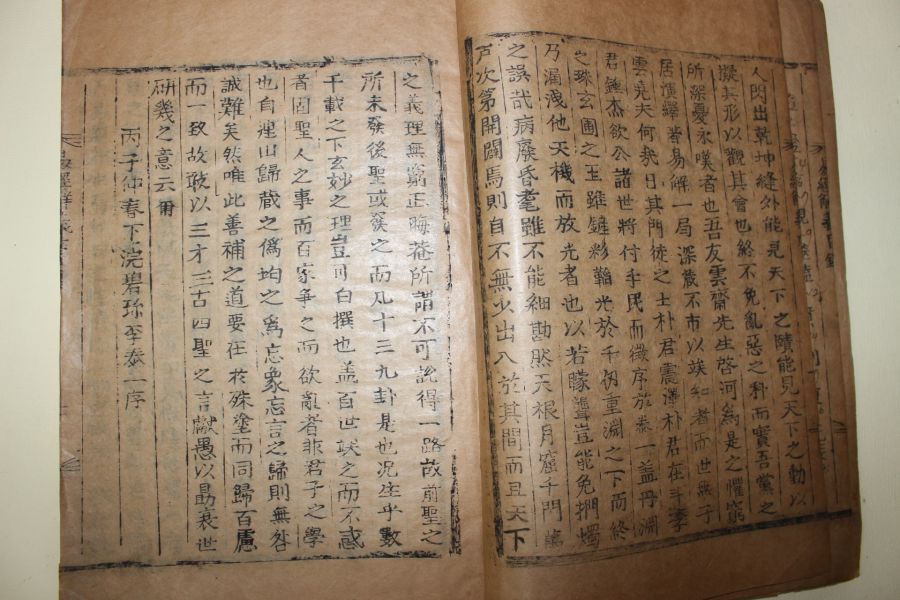 人閃出乾坤縫外能見天下之賾能見天下之動以
擬其形以觀其會也終不免亂惡之科而實吾黨之
所深憂永嘆者也吾友雲齋先生啓河
居演繹著易解一局深藏不市以竢知者而世無子
雲堯夫何哉日其門徒之士朴君震澤朴君在斗李
君鍾杰欲公諸世將付手民而徵序於泰一盖丹淵
之珠玄圃之玉雖鏟彩韜光於千仞重淵之下而終
乃漏洩他天機而放光者也以若矇聾豈能免捫燭
之誤哉病廢昏耄雖不能細勘然天根月窟千門萬
戶次第開闔焉則自不無少出入於其間而且天下
之義理無窮正晦菴所謂不可說得一路故前聖之
所未發後聖或發之而凡十三九卦是也况生乎數
千載之下玄妙之理豈可白撰也盖百世竢之而不惑
者固聖人之事而百家爭之而欲亂者非君子之學
也自連山歸藏之僞均之爲忘象忘言之歸則無咎
誠難矣然唯此善補之道要在於殊塗而同歸百慮
而一致故敢以三才三古四聖之言獻愚以勗衰世
研幾之意云爾
丙子仲春下浣碧珍李泰一序